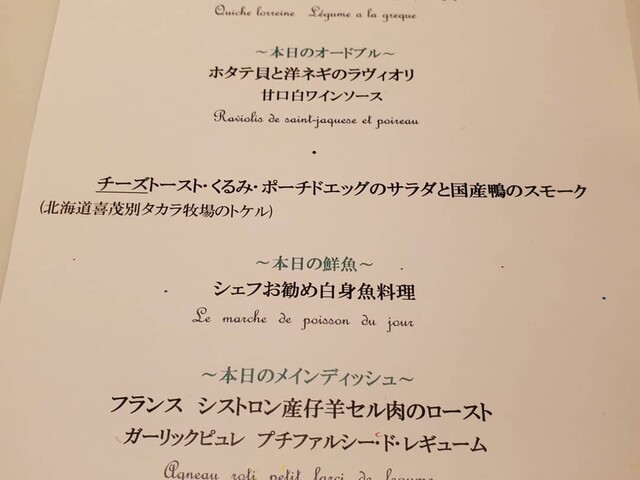 Quiche lorreine Légume a la greque
～本日のオードブル～
ホタテ貝と洋ネギのラヴィオリ
甘口白ワインソース
Raviolis de saint-jaquese et poireau
チーズトースト・くるみ・ポーチドエッグのサラダと国産鴨のスモーク
(北海道喜茂別タカラ牧場のトケル)
～本日の鮮魚～
シェフお勧め白身魚料理
Le marche de poisson du jour
～本日のメインディッシュ～
フランス シストロン産仔羊セル肉のロースト
ガーリックピュレ プチファルシー・ド・レギューム
Agneau roti petit farci de legume